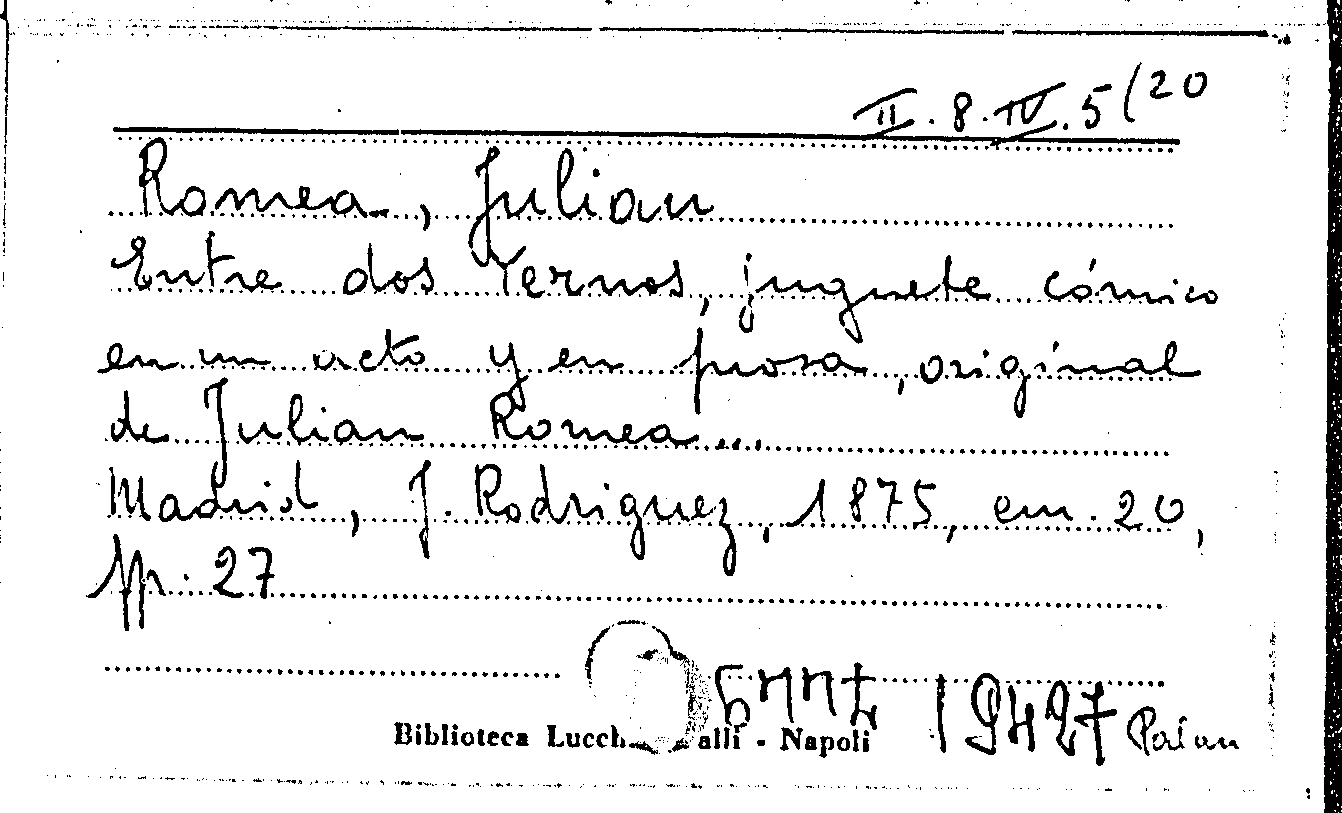 II. 8. IV. 5(20
Romea, Julian
Entre dos Yernos, juguete cómico
en un acto y en prosa, original
de Julian Romea...
Madrid, J. Rodriguez, 1875, cm. 20,
pp. 27
19427
Biblioteca Lucch alli - Napoli